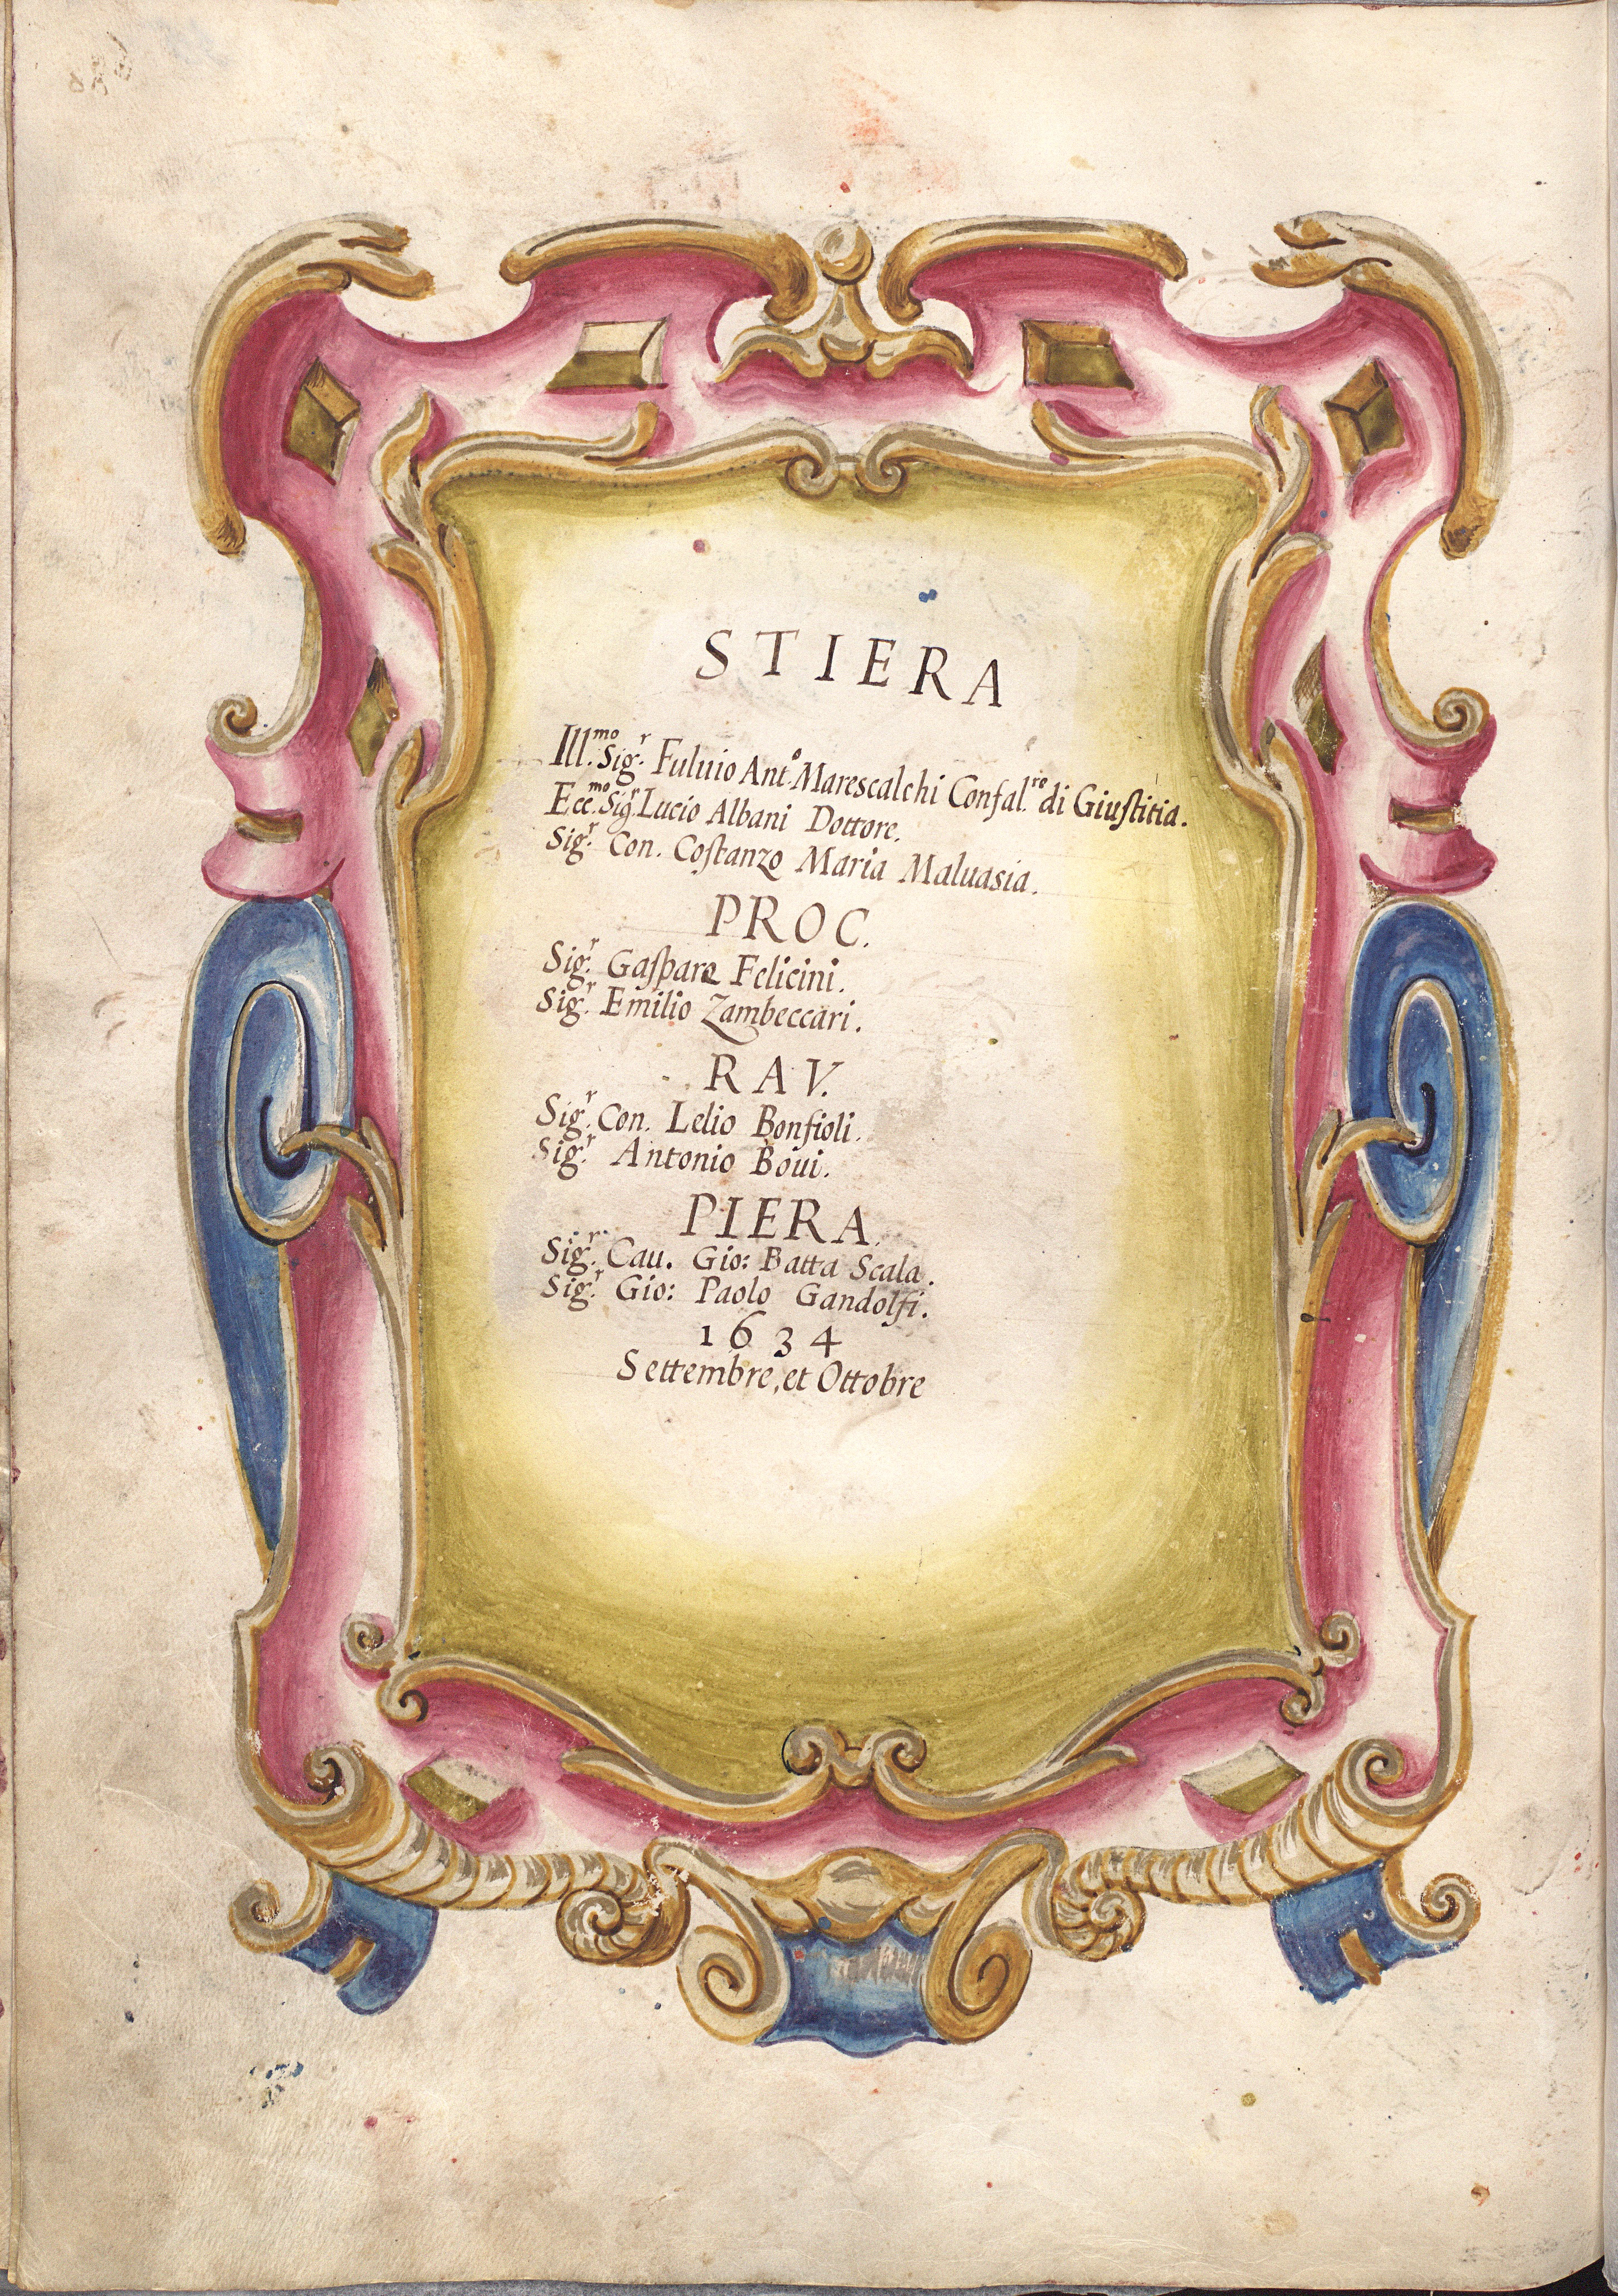 STIERA
Ill.mo Sig.r Fuluio Ant.o Marescalchi Confal.re di Giuſtitia.
Ecc.mo Sig.r Lucio Albani Dottore.
Sig.r Con. Coſtanzo Maria Maluasia.
PROC.
Sig.r Gaſparo Felicini.
Sig.r Emilio Zambeccari.
RAV.
Sig.r Con. Lelio Bonfioli.
Sig.r Antonio Boui.
PIERA.
Sig.r Cau. Gio: Batta Scala.
Sig.r Gio: Paolo Gandolfi.
1634
Settembre, et Ottobre